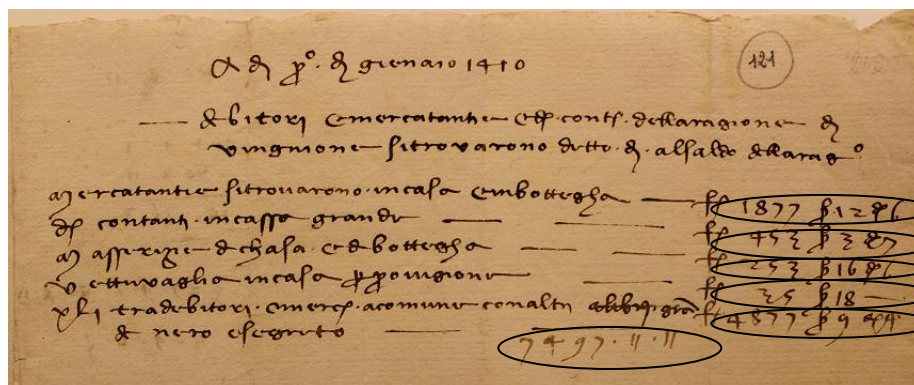 A dì p.º di gienaio 1410
121
debitori e mercatantie e d. conti della ragione di
vingnione si trovarono detto dì al saldo della rag.º
Mercatantie si trovarono in casa e in bottegha — f. 1877 s. 12 d. 6
d. contanti in cassa grande — f. 453 s. 3 d. 7
Masserizie di chasa e di bottegha — f. 253 s. 16 d. 6
vettuvaglia in casa p. provigione — f. 35 s. 18 —
tra debitori e merc. a comune con altri f. 4877 s. 9 d. 4
di nero e segreto — 7497. 11. 11